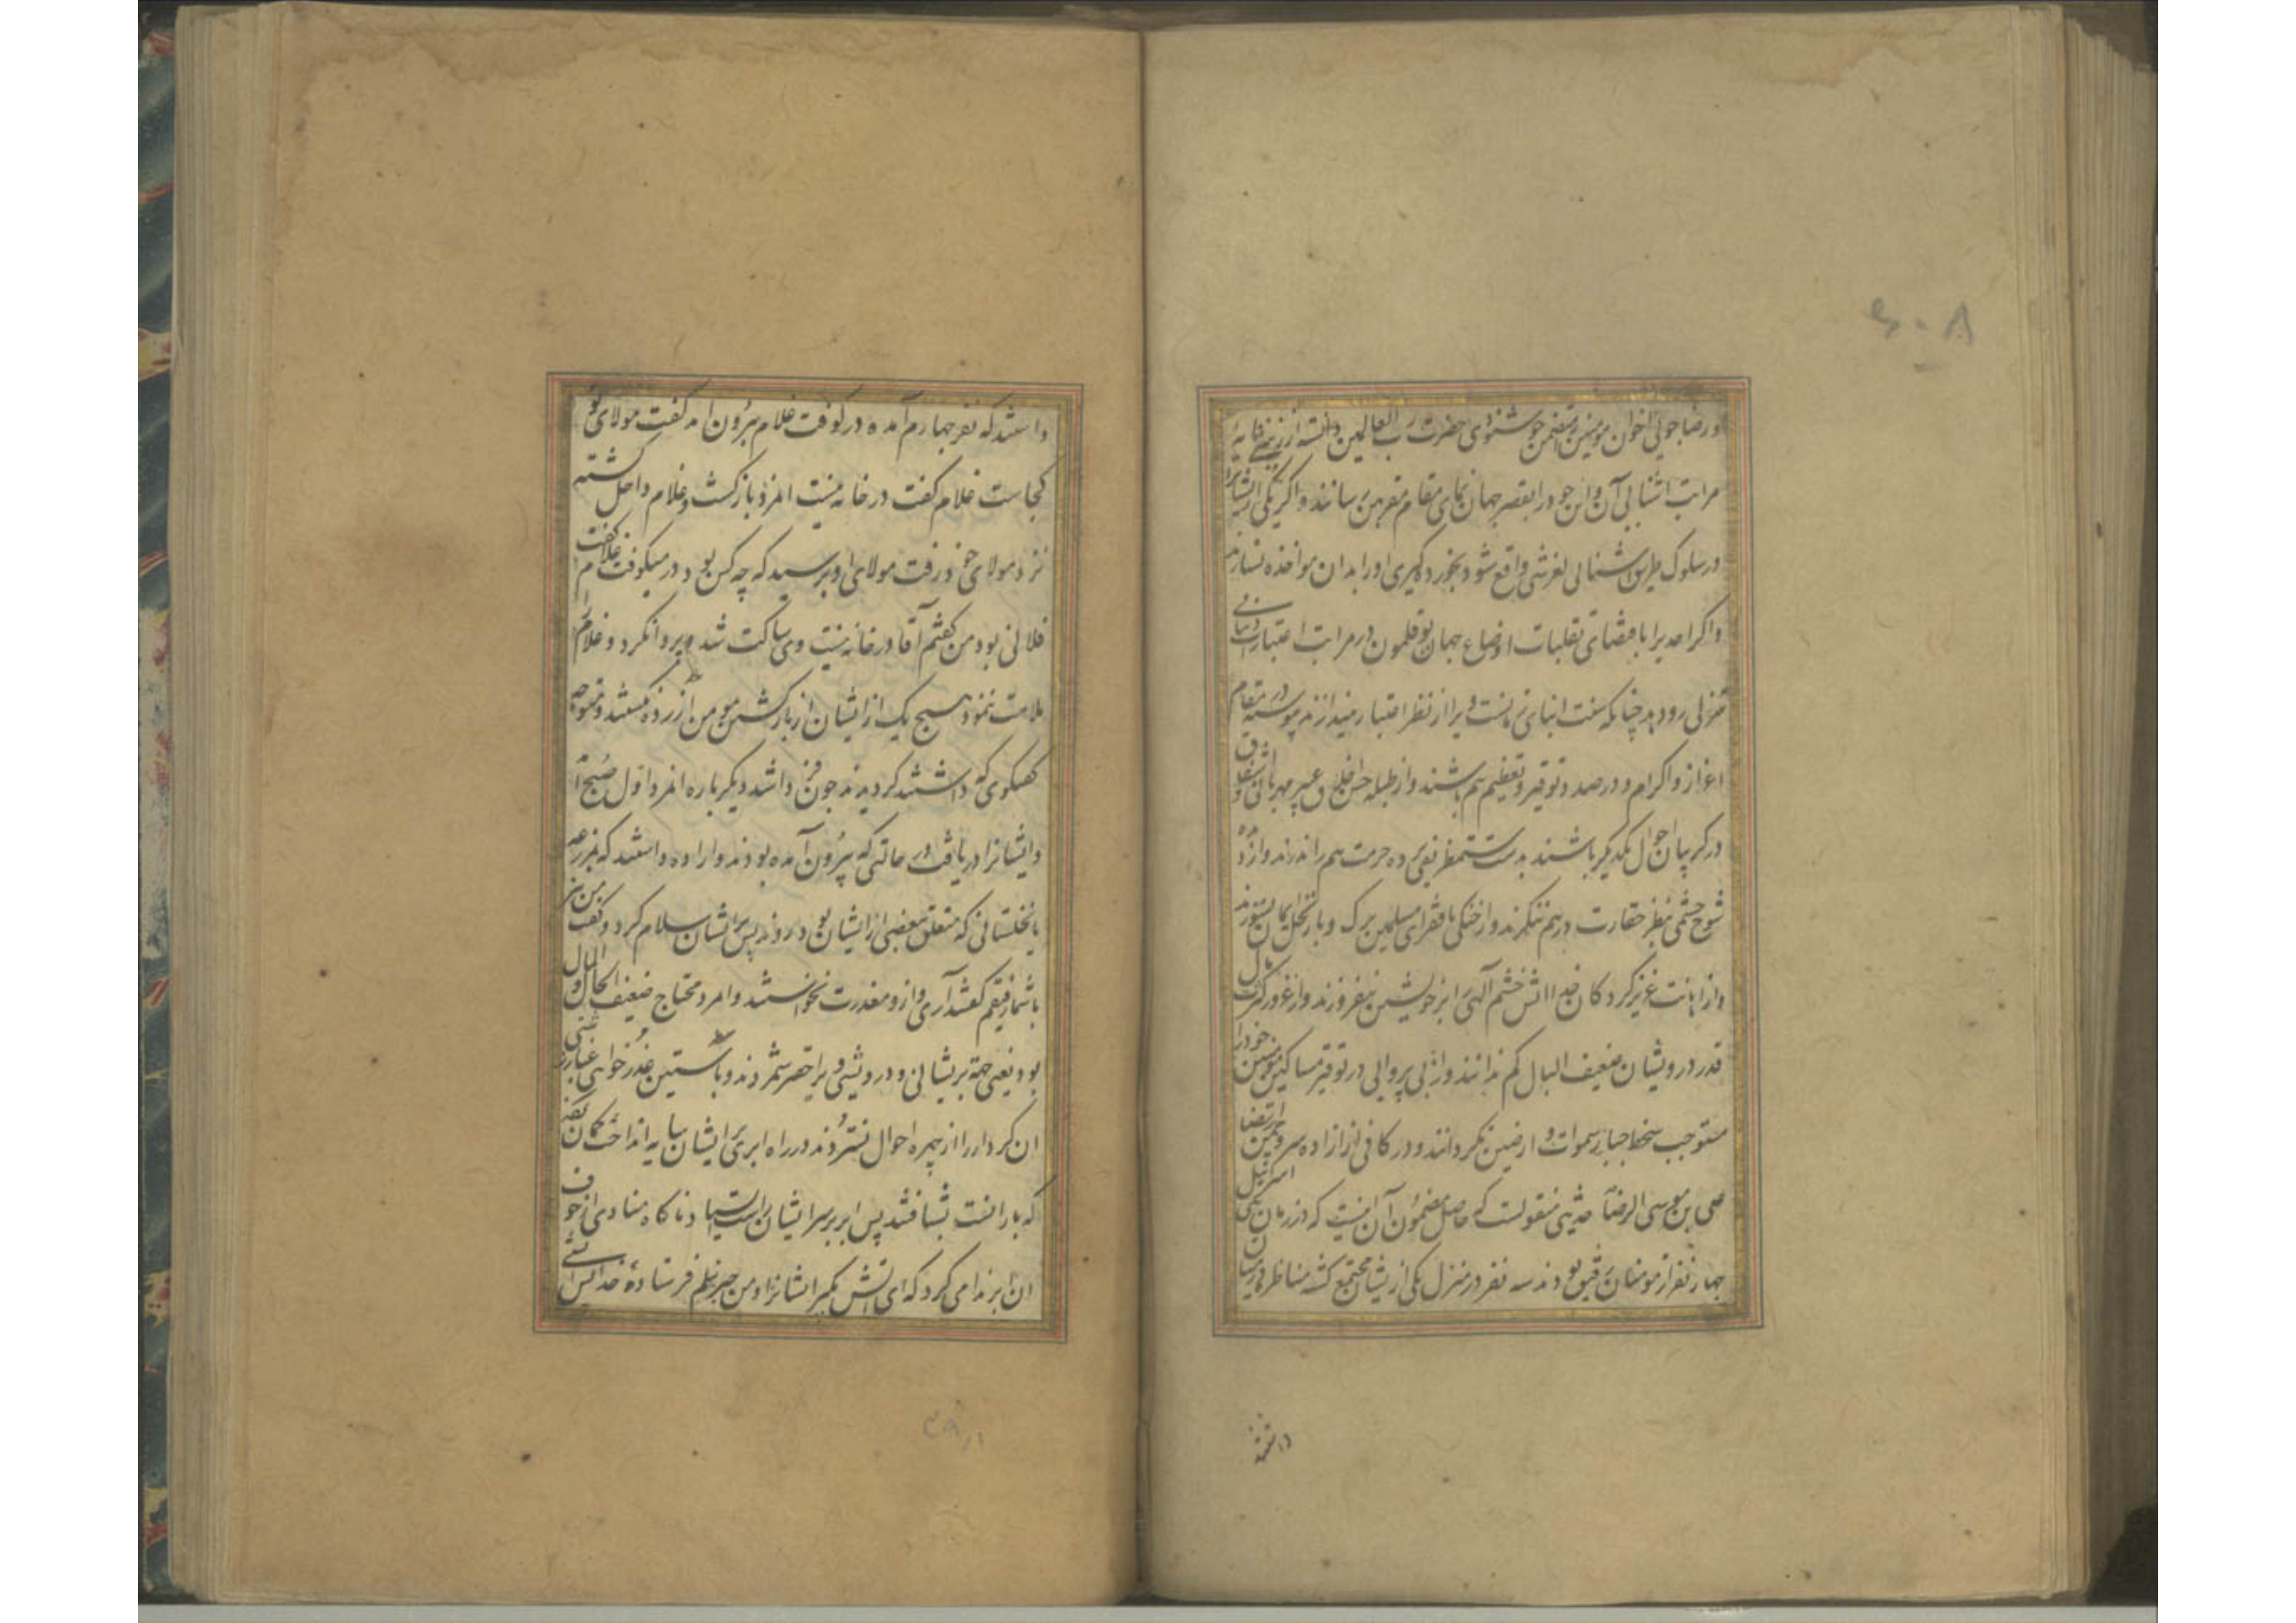 و رضاجوئی اخوان مومنین متضمن خوشنودی حضرت رب العالمین دانسته از
مراتب اشنائی آن و این خود را بقصر جهان نمای مقام مقربین رسانند و اگر یکی از ایشانرا
در سلوک طریق اشنائی لغزشی واقع شود بخورده گیری او را بدان مواخذه نسازند
و اکر احدیرا باقتضای تقلبات اوضاع جهان بوقلمون در مراتب اعتبارات دنیائی
تنزلی رو دهد چنانکه سنت ابنای زمانست ویرا از نظر اعتبار نیندازند پیوسته در مقام
اعزاز و اکرام و در صدد توقیر و تعظیم هم باشند و از طبله حسن خلق عبیر مهربانی و
در کریبان احوال یکدیگر باشند بدست ستمظریفی پرده حرمت هم را ندرند و از
شوخ چشمی بنظر حقارت در هم ننکرند و از خنکی با فقرای مسلمین برک و بار نخل ایمان نسوزند
و از اهانت عزیز کردکان خدا اتش خشم آلهی را بر خویشتن نیفروزند و از غرور کثرت مال
قدر درویشان ضعیف البال کم ندانند و از بی پروایی در توقیر مساکین مومنین خود را
مستوجب سخط جبار سموات و ارضین نکردانند و در کافی از ازاده سرو چمن ارتضا
علی بن موسی الرضا حدیثی منقولست که حاصل مضمون آن اینست که در زمان بنی اسرائیل
چهار نفر از مومنان رفیق بودند سه نفر در منزل یکی از ایشان مجتمع کشته مناظره در میان
داشتند
داشتند که نفر چهارم آمده در کوفت غلام بیرون امد کفت مولای تو
کجاست غلام کفت در خانه نیست امرد بازکشت و غلام داخل کشته
نزد مولای خود رفت مولای او پرسید که چه کس بود در میکوفت غلام کفت
فلانی بود من کفتم آقا در خانه نیست وی ساکت شد و پروا نکرد و غلام را
ملامت ننمود هیچ یک از ایشان از بازکشتن مومن ازرده نکشتند و متوجه
کفتکوی که داشتند کردیدند چون روز دیگر باره امرد اول صبح آمد
و ایشانرا دریافت در حالتی که بیرون آمده بودند و اراده داشتند که بمزرعه
یا نخلستانی که متعلق ببعضی از ایشان بود روند پس بر ایشان سلام کرد و کفت من نیز
با شما رفیقم کفتند آری و از و معذرت نخواستند و امرد محتاج ضعیف الحال و المال
بود یعنی بجهة پریشانی و درویشی ویرا حقیر شمردند و باستین عذر خواهی غبار
ان کردار را از چهره احوال نستردند در راه ابری بر ایشان سایه انداخت کمان
که بارانست بشتافتند پس ابر بر سر ایشان راست ایستاد ناکاه منادی از جوف
ان ابر ندا می کرد که ای اتش بکیر ایشانرا و من جبرئیلم فرستاده خدا پس اتشی